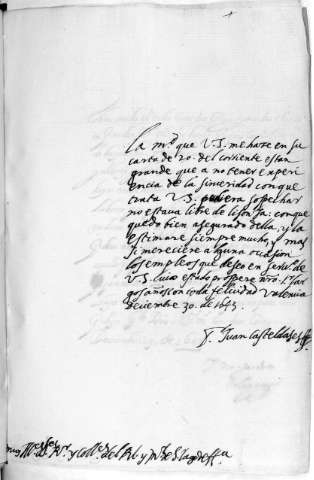 La md. que V.S. me haze en su
carta de 20. del corriente es tan
grande que a no tener experi
encia de la sinceridad con que
trata V.S. pudiera sospechar
no estava libre de lisonja: con que
quedo bien asegurado della, y la
estimare siempre mucho, y mas
si mereciere alguna ocasion
los empleos que deseo en serui.o de
V.S. cuio estado prospere nro. Sr. lar
gos años con toda felicidad Valencia
Deciembre 30. de 1645.
Juan Casteldases